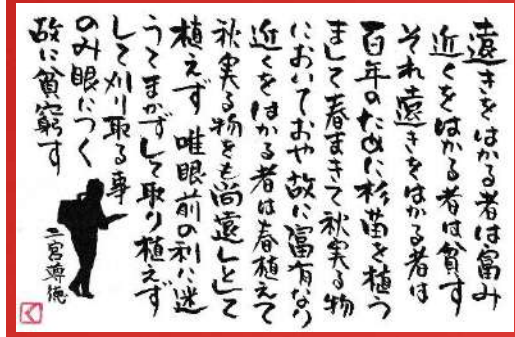 遠きをはかる者は富み
近くをはかる者は貧す
それ遠きをはかる者は
百年のために杉苗を植う
まして春まきて秋実る物
においておや故に富有なり
近くをはかる者は春植えて
秋実る物をも尚遠しとして
植えず 唯眼前の利に迷
うてまかずして取り植えず
して刈り取る事
のみ眼につく
故に貧窮す
二宮尊徳